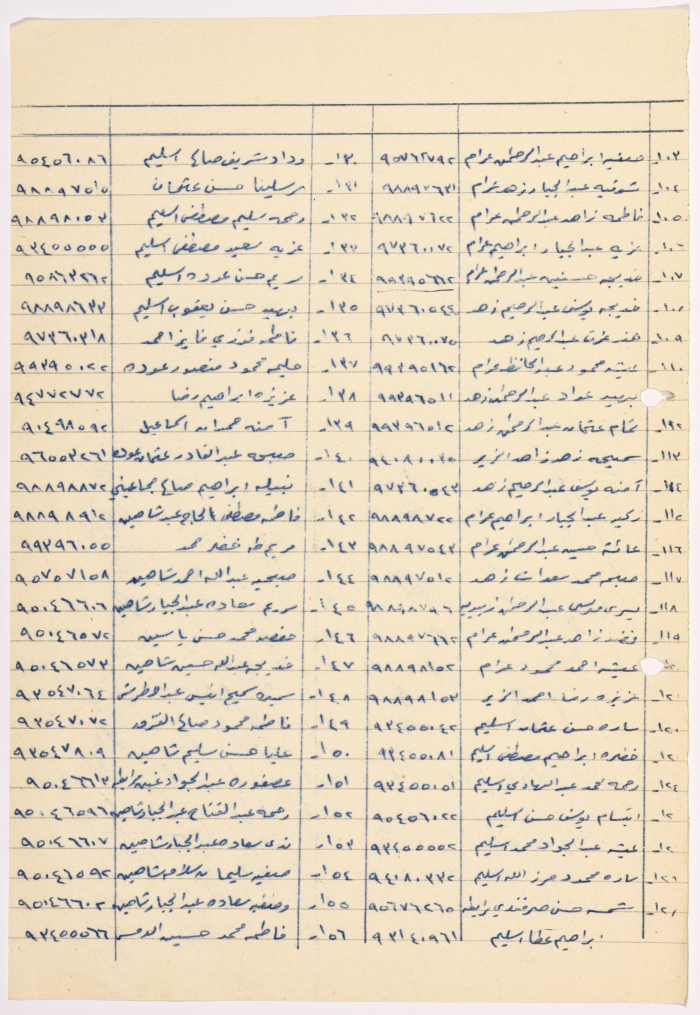 ١٠٣- صفيه ابراهيم عبدالرحمن عرام ٩٥٧٦٢٧٩٢ ١٣٠- وداد شريف صالح اسليم ٩٥٤٥٦٠٨٦
١٠٤- شوقيه عبدالجبار زهد عرام ٩٨٨٩٧٦٣١ ١٣١- مرسلينا حسن عثمان ٩٨٨٩٧٥١٥
١٠٥- فاطمه زاهد عبدالرحمن عرام ٩٨٨٩٧٦٢٢ ١٣٢- رحمه سليم مصطفى اسليم ٩٨٨٩٨٠٥٣
١٠٦- عزيه عبدالجبار ابراهيم عرام ٩٧٣٦٠٠٧٢ ١٣٣- عزيه سعيد مصطفى اسليم ٩٣٤٥٥٥٥٥
١٠٧- خديجه عبدالرحمن عرام ٩٩٣٩٥٦٦٢ ١٣٤- مريم حسن عوده اسليم ٩٥٨٦٣٢٦٢
١٠٨- خديجه يوسف عبدالرحيم زهد ٩٧٣٦٠٥٤٤ ١٣٥- بهيه حسن يعقوب اسليم ٩٨٨٩٨٦٣٣
١٠٩- هند عبدالرحيم زهد ٩٧٣٦٠٠٧٥ ١٣٦- فاطمه فوزي فايز احمد ٩٧٣٦٠٣١٨
١١٠- عيشه محمود عبدالحافظ عرام ٩٩٣٩٥١٦٢ ١٣٧- حليمه محمود منصور عوده ٩٩٣٩٥٠٢٢
بهيه عواد عبدالرحمن زهد ٩٩٣٩٦٥١١ ١٣٨- عزيزه ابراهيم رضا ٩٤٧٧٢٧٧٢
١٩٢- تمام عثمان عبدالرحمن زهد ٩٩٣٩٦٥١٢ ١٣٩- آمنه حمدان اسماعيل ٩٠٤٩٨٥٩٢
١١٣- سميحه زهد زاهد الزير ٩٤٠٨٠٠٣٥ ١٤٠- صبحه عبدالقادر عثمان عوده ٩٦٥٥٣٢٦١
آمنه يوسف عبدالرحيم زهد ٩٧٣٦٠٥٤٣ ١٤١- نبيله ابراهيم صالح جماعيني ٩٨٨٩٨٨٧٢
١١٢- زكيه عبدالجبار ابراهيم عرام ٩٨٨٩٨٧٢٢ ١٤٢- فاطمه مصطفى الحاج عبد شاهين ٩٨٨٩٨٩١٢
١١٦- عائشة حسين عبدالرحمن عرام ٩٨٨٩٧٥٤٣ ١٤٣- مريم طه خضر حمد ٩٩٣٩٦٠٥٥
١١٧- صبحه محمد سعدات زهد ٩٨٨٩٧٥١٢ ١٤٤- صبحيه عبدالله احمد شاهين ٩٥٧٥٧١٥٨
١١٨- يسرى موسى عبدالرحمن ٩٨٨٩٨٧٩٦ ١٤٥- مريم سعاده عبدالجبار شاهين ٩٥٠٤٦٦٠٦
١١٩- فضه زاهد عبدالرحمن عرام ٩٨٨٩٧٦٦٢ ١٤٦- حفصه محمد حسن ياسين ٩٥٠٤٦٥٧٢
عيشه احمد محمود عرام ٩٨٨٩٨١٥٢ ١٤٧- خديجه عبدالله حسين شاهين ٩٥٠٤٦٥٧٣
١٢١- عزيزه رضا احمد الزير ٩٨٨٩٨١٥٣ ١٤٨- سميره سميح انيس عبدالاطرش ٩٣٥٤٧٠٦٤
١٢٠- ساره حسن عثمان اسليم ٩٣٤٥٥٠٤٢ ١٤٩- فاطمه محمود صالح ٩٣٥٤٧٠٧٢
١٢٠- خضره ابراهيم مصطفى اسليم ٩٣٤٥٥٠٨١ ١٥٠- عليا حسن سليم شاهين ٩٣٥٤٧٨٠٩
١٢٤- رحمه محمد عبدالهادي اسليم ٩٣٤٥٥٠٥١ ١٥١- عصفوره عبدالجواد ٩٥٠٤٦٦١٣
١٢- ابتسام يوسف حسن اسليم ٩٥٤٥٦٠٢٢ ١٥٢- رحمه عبدالفتاح عبدالجبار شاهين ٩٥٠٤٦٥٩٦
١٢- عيشه عبدالجواد محمد اسليم ٩٣٤٥٥٥٥٢ ١٥٣- ندى سعاده عبدالجبار شاهين ٩٥٠٤٦٦٠٧
١٢٦- ساره محمود حرز الله اسليم ٩٤٠٨٠٣٣٢ ١٥٤- صفيه سليمان سلامه شاهين ٩٥٠٤٦٥٩٢
١٢٨- شمسه حسن ٩٥٦٧٦٢٦٥ ١٥٥- وصفيه سعاده عبدالجبار شاهين ٩٥٠٤٦٦٠٢
براهيم عطا اسليم ٩٣١٤٠٩٦١ ١٥٦- فاطمه محمد حسين ٩٣٤٥٥٥٦٦